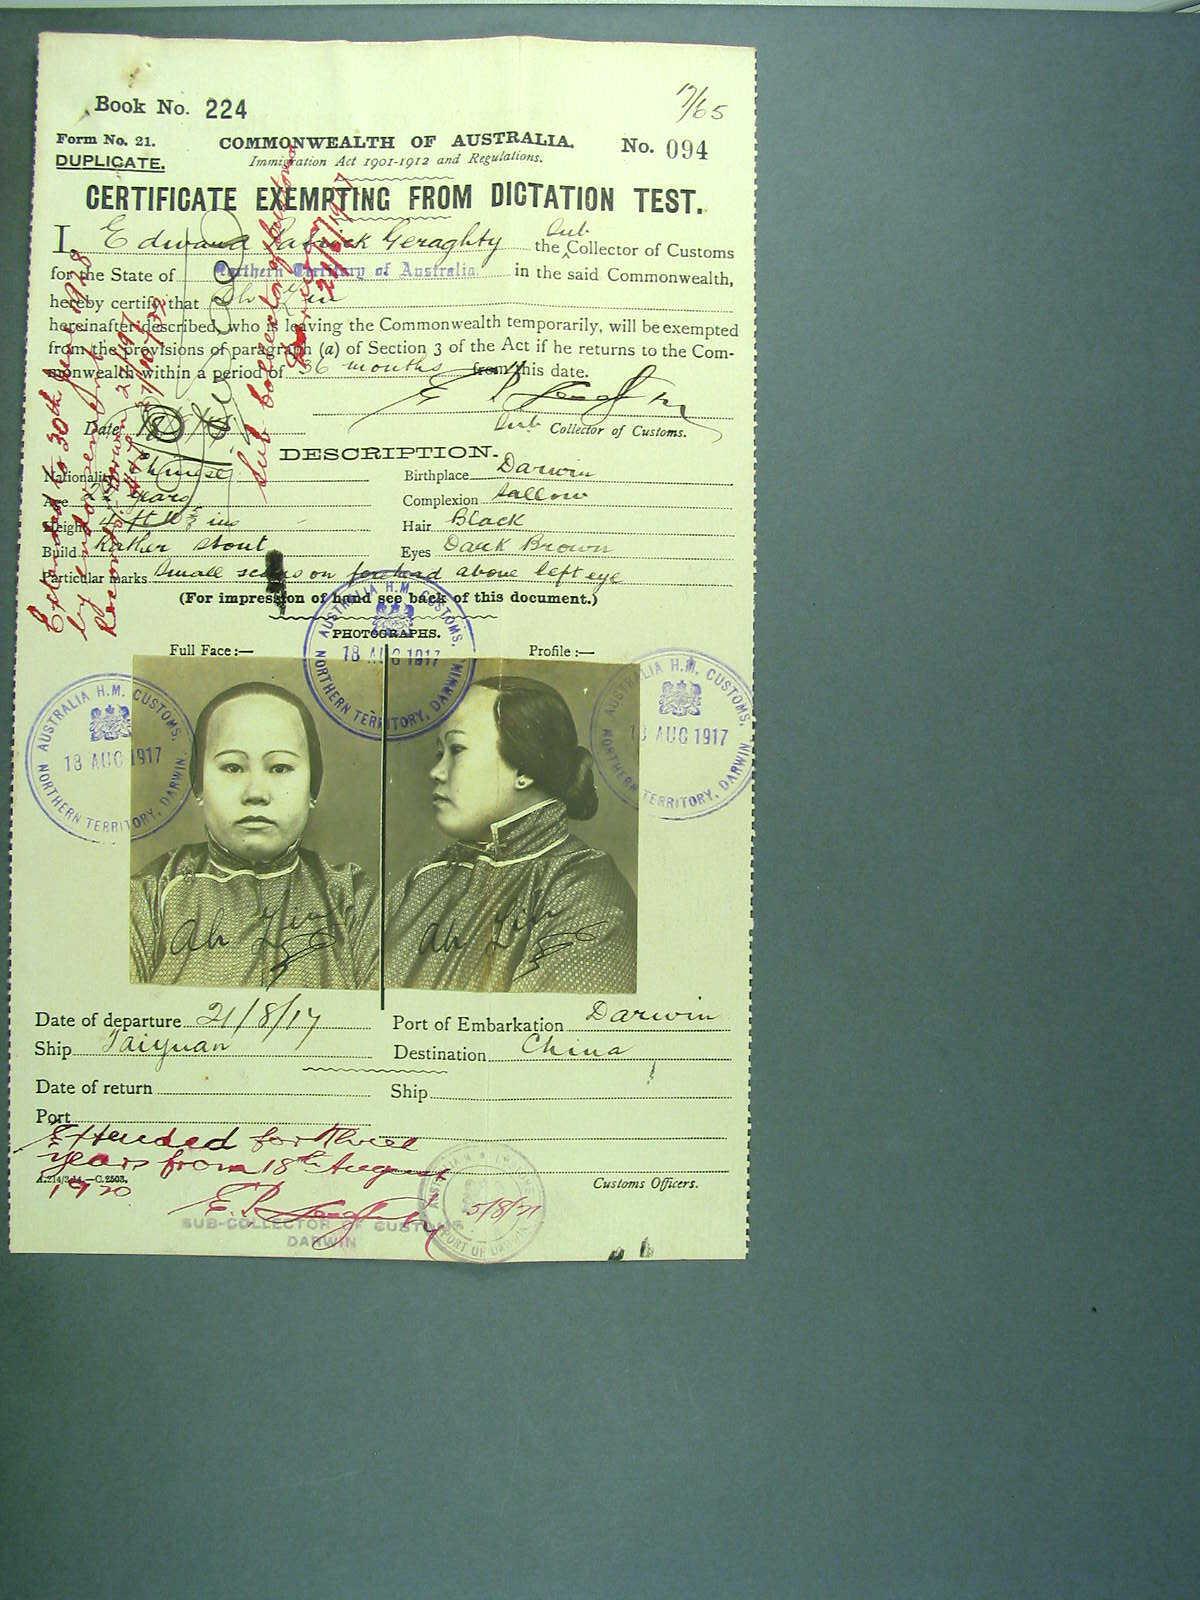 Book No. 224
17/65
Form No. 21.
DUPLICATE.
COMMONWEALTH OF AUSTRALIA.
No. 094
Immigration Act 1901-1912 and Regulations.
CERTIFICATE EXEMPTING FROM DICTATION TEST.
I Edward Patrick Geraghty the Sub Collector of Customs
for the State of Northern Territory of Australia. in the said Commonwealth,
hereby certify that Ah Yin
hereinafter described, who is leaving the Commonwealth temporarily, will be exempted
from the provisions of paragraph (a) of Section 3 of the Act if he returns to the Com-
monwealth within a period of 36 months from this date.
Sub Collector of Customs.
Date
DESCRIPTION.
Nationality Chinese
Birthplace Darwin
Age 22 years
Complexion Sallow
Height 4 ft ins
Hair Black
Build Rather stout
Eyes Dark Brown
Particular marks Small scars on forehead above left eye
(For impression of hand see back of this document.)
PHOTOGRAPHS.
Full Face :—
Profile :—
AUSTRALIA H.M. CUSTOMS,
18 AUG 1917
NORTHERN TERRITORY, DARWIN.
AUSTRALIA H.M. CUSTOMS,
18 AUG 1917
NORTHERN TERRITORY, DARWIN.
AUSTRALIA H.M. CUSTOMS,
18 AUG 1917
NORTHERN TERRITORY, DARWIN.
Ah Yin
Ah Yin
Date of departure 21/8/17
Port of Embarkation Darwin
Ship Taiyuan
Destination China
Date of return
Ship
Port
Extended for three
years from 18th August
1920
Customs Officers.
5/8/21
SUB-COLLECTOR OF CUSTOMS
DARWIN
PORT OF DARWIN
Extended to 30th June 1928
by endorsement
Sub Collector of Customs